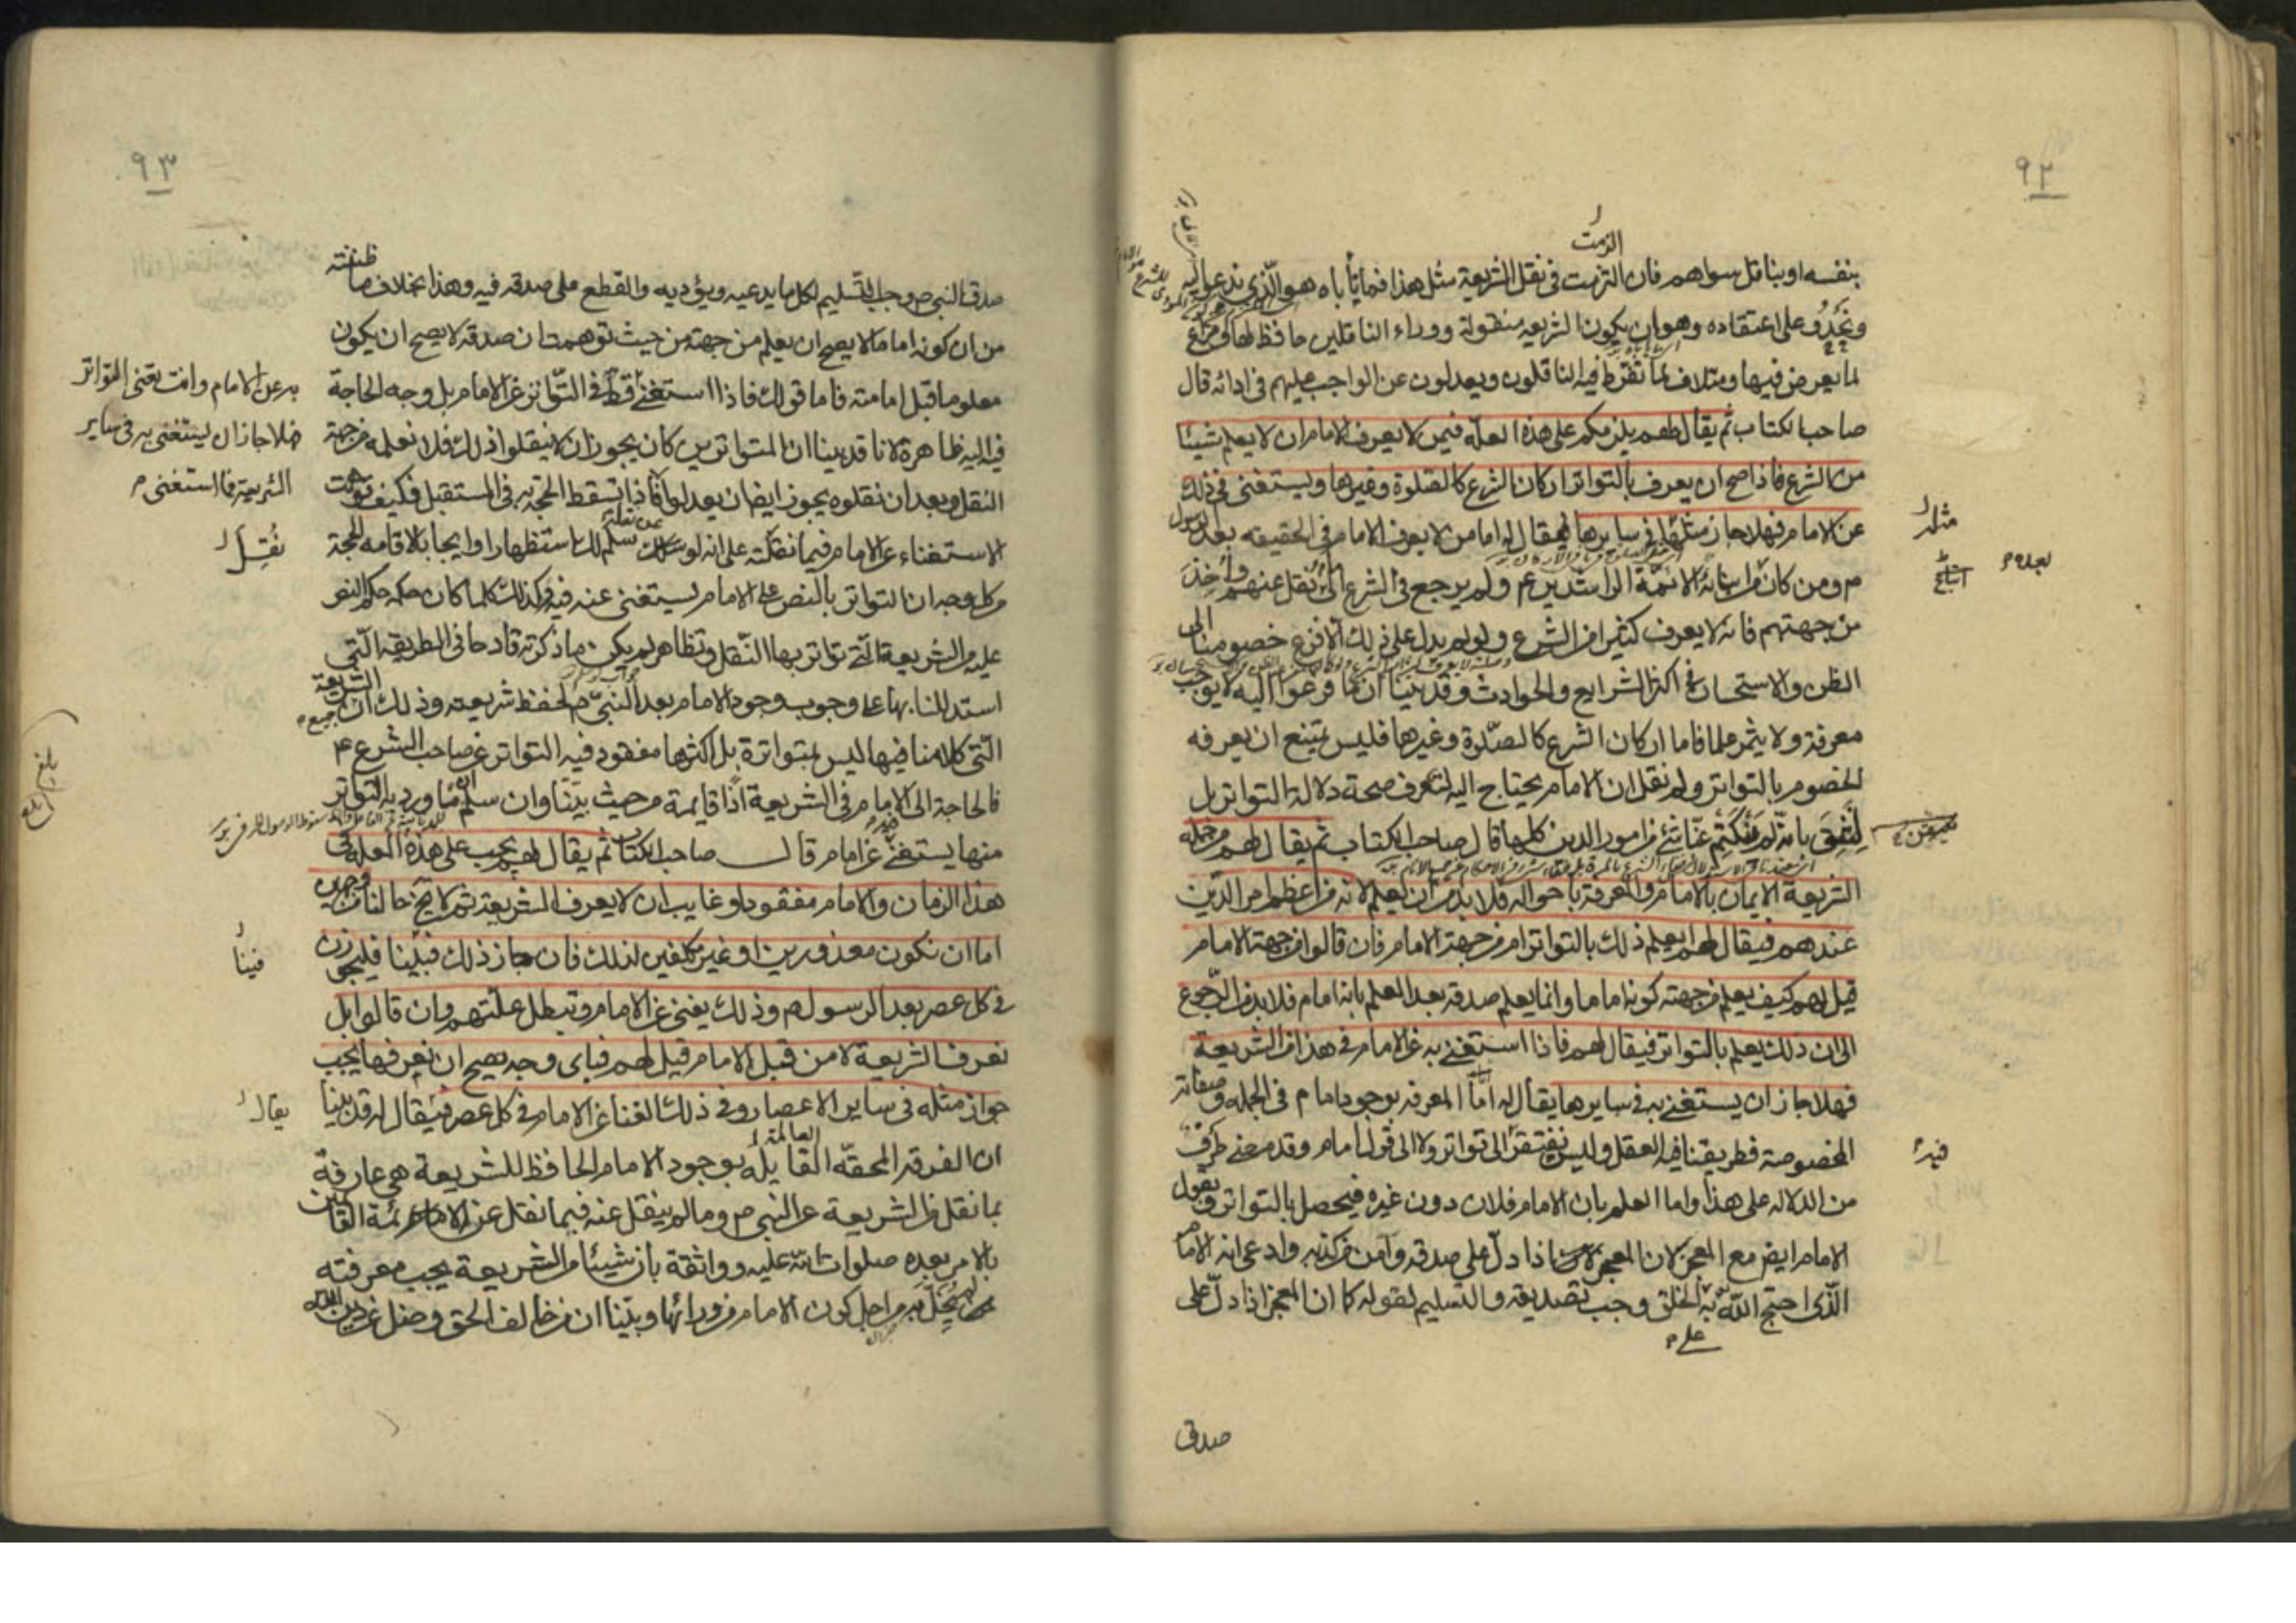 ٩٢
الزمت
بنفسه او بناقل سواهم فان التزمت في نقل الشريعة مثل هذا فما يأباه هو الذي ندعو اليه
ونحدو على اعتقاده وهو ان يكون الشريعه منقولة ووراء الناقلين حافظ لها
لما يعرض فيها ومتلاف لما تفرط فيه الناقلون ويعدلون عن الواجب عليهم في ادائه قال
صاحب الكتاب ثم يقال لهم يلزمكم على هذه العلّه فيمن لا يعرف الامام ان لا يعلم شيئا
من الشرع فاذا صح ان يعرف بالتواتر اركان الشرع كالصلوة وغيرها ويستغنى في ذلك
عن الامام فهلا جاز مثله في سايرها يقال له اما من لا يعرف الامام في الحقيقه بعد الرسول
مثله
بعده
م ومن كان من ابنائه الائمة الراشدين عم ولم يرجع في الشرع الى نقل عنهم واخذ
من جهتهم فانه لا يعرف كثيرا من الشرع ولو لم يدل على ذلك الا فزع خصومنا الى
الظن والاستحسان في اكثر الشرايع والحوادث وقد بينا ان ما فزعوا اليه لا يوجب
معرفة ولا يثمر علما فاما اركان الشرع كالصلوة وغيرها فليس يمتنع ان يعرفه
الخصوم بالتواتر ولم نقل ان الامام يحتاج اليه لتعرف صحة دلالة التواتر بل
لنثق بانه لم ينكتم عنا شئ من امور الدين كلها قال صاحب الكتاب ثم يقال لهم من جمله
الشريعة الايمان بالامام والمعرفة باحواله فلا بد من ان يعلم لانه من اعظم امر الدين
عندهم فيقال لهم ايعلم ذلك بالتواتر ام من جهة الامام فان قالوا من جهة الامام
قيل لهم كيف يعلم من جهته كونه اماما وانما يعلم صدقه بعد العلم بانه امام فلا بد من الرجوع
الى ان ذلك يعلم بالتواتر فيقال لهم فاذا استغنى به عن الامام في هذا من الشريعة
فهلا جاز ان يستغنى به في سايرها يقال له اما المعرفة بوجود امام في الجمله وصفاته
المخصوصة فطريقنا فيه العقل وليس نفتقر الى تواتر ولا الى قول امام وقد مضى طرف
فيه
من الدلاله على هذا واما العلم بان الامام فلان دون غيره فيحصل بالتواتر وبقول
الامام ايضا مع المعجز لان المعجز اذا دل على صدقه وآمن من كذبه وادعى انه الامام
الذي احتج الله به الخلق وجب تصديقه والتسليم لقوله كما ان المعجز اذا دل على
على
صدق
٩٣
صدق النبي ص وجب التسليم لكل ما يدعيه ويؤديه والقطع على صدقه فيه وهذا بخلاف ما ظننته
من ان كونه اماما لا يصح ان يعلم من جهته من حيث توهمت ان صدقه لا يصح ان يكون
معلوما قبل امامته فاما قولك فاذا استغنى قط في التواتر عن الامام بل وجه الحاجة
به عن الامام وانت تعنى التواتر
فهلا جاز ان يستغنى به في ساير
الشريعة فما استغنى
فيه اليه ظاهرة لانا قد بينا ان المتواترين كان يجوز ان لا ينقلوا ذلك فلا نعلمه من جهة
النقل وبعد ان نقلوه يجوز ايضا ان يعدلوا فاذا تسقط الحجة به في المستقبل فكيف توهمت
الاستغناء عن الامام فيما نقلته على انه لو سلم لك استظهارا وايجابا لاقامه الحجة
نقل
من كل وجه ان التواتر بالنص على الامام يستغنى عنه فيه وكذلك كلما كان حكمه حكم النص
عليه من الشريعة التي تواتر بها النقل وتظاهر لم يكن ما ذكرته قادحا في الطريقه التي
استدللنا بها على وجوب وجود الامام بعد النبي ص لحفظ شريعته وذلك ان جميع الشريعة
التي كلامنا فيها ليس بمتواترة بل اكثرها مفقود فيه التواتر عن صاحب الشرع ع
فالحاجة الى الامام في الشريعة اذا قايمة من حيث بينا وان سلم ان ما ورد به التواتر
منها يستغنى عن امام قال صاحب الكتاب ثم يقال لهم يجب على هذه العله في
هذا الزمان والامام مفقود او غايب ان لا يعرف الشريعة ثم لا يخ حالنا من وجهين
اما ان نكون معذورين او غير مكلفين لذلك فان جاز ذلك فينا فليجوزن
فينا
في كل عصر بعد الرسول ص وذلك يغنى عن الامام وتبطل علتهم وان قالوا بل
نعرف الشريعة لا من قبل الامام قيل لهم فباى وجه يصح ان نعرفها يجب
جواز مثله في ساير الاعصار وفي ذلك الغنا عن الامام في كل عصر فيقال له قد بينا
يقال
ان الفرقه المحقّه القايله بوجود الامام الحافظ للشريعة هي عارفة
بما نقل من الشريعة عن النبي ص وما لم ينقل عنه فيما نقل عن الائمة القائمين
بالامر بعده صلوات الله عليه وواثقة بان شيئا من الشريعة يجب معرفته
لم يخل به من اجل كون الامام من ورائها وبينا ان من خالف الحق وضل عن دين الله
بلغ